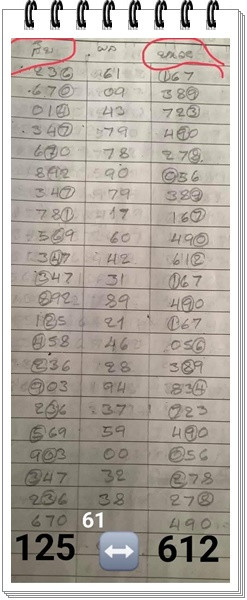 236 61 167
670 09 389
014 43 723
347 79 490
670 78 278
892 90 056
347 79 389
781 17 167
569 60 490
347 42 612
347 31 167
892 89 490
125 21 167
458 46 056
236 28 389
903 94 834
236 37 723
569 59 490
903 00 056
347 32 278
236 38 278
670 61 490
125 ↔ 612